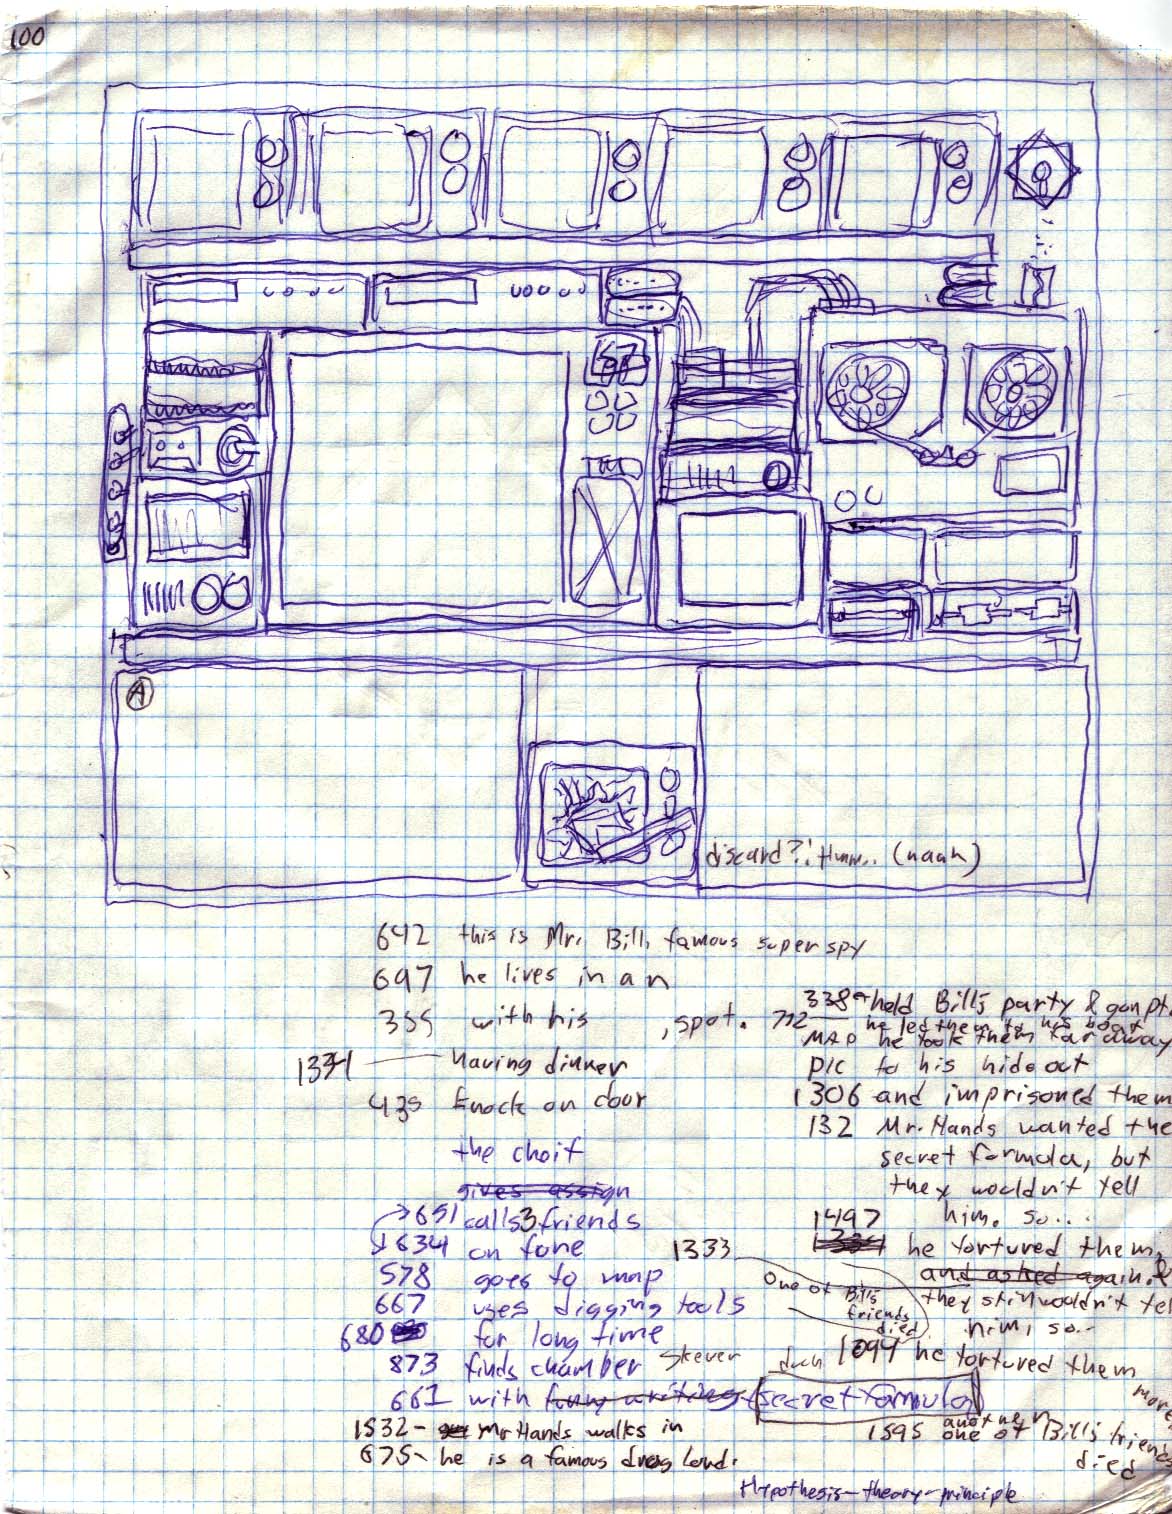 100
67
A
discard?! Hmm.. (naah)
642 this is Mr. Bill, famous super spy
697 he lives in an
355 with his , spot.
1334 having dinner
435 Knock on door
the choif
gives assign
651 calls 3 friends
634 on fone
578 goes to map
667 uses digging tools
680 for long time
873 finds chamber
661 with funny writing secret formula
1532 - Mr Hands walks in
675 - he is a famous drug lord.
338 held Bill's party & gunpt.
772 he led them to his boat
MAP he took them far away
pic to his hideout
1306 and imprisoned them
132 Mr. Hands wanted the
secret formula, but
they wouldn't tell
1497 him. so....
1333 1334 he tortured them,
and asked again. &
One of Bill's friends died
they still wouldn't tel
him, so..
1094 he tortured them
more
1595 another one of Bill's friends
died
Skewer
Hypothesis - theory - principle